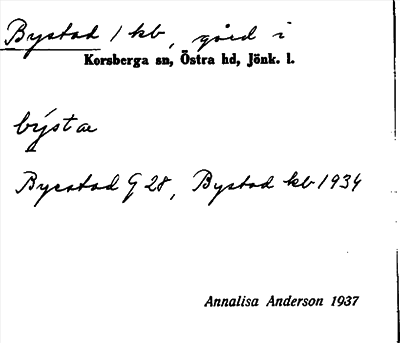 Bystad 1 kb, gård i
Korsberga sn, Östra hd, Jönk. l.
býstæ
Bycstad G 28, Bystad kb 1934
Annalisa Anderson 1937